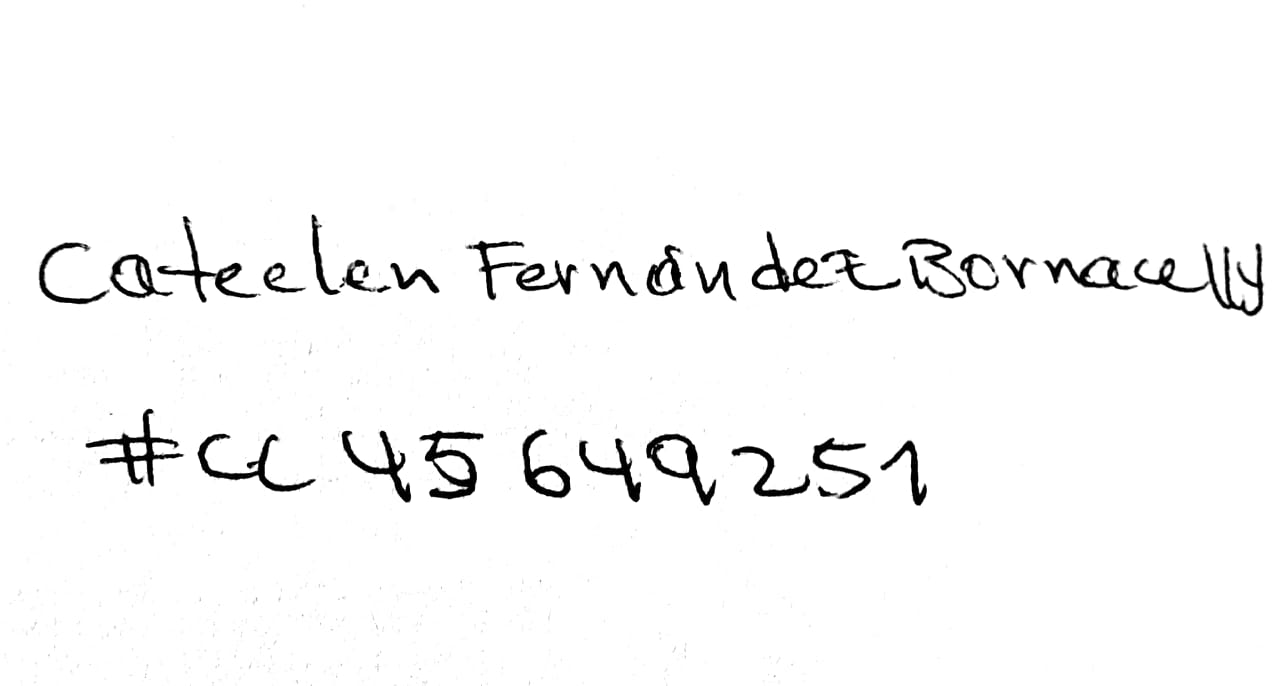 Cateelen Fernández Bornacelly
#CC 45649251